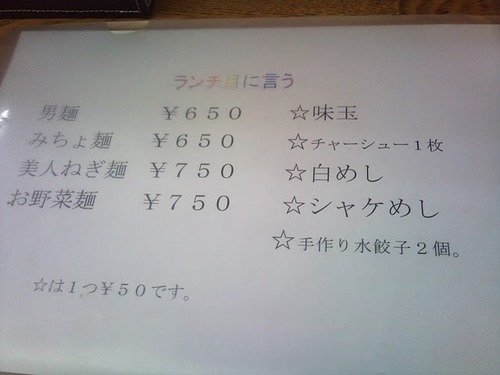 ランチ日に言う
男麺 ￥６５０ ☆味玉
みちょ麺 ￥６５０ ☆チャーシュー１枚
美人ねぎ麺 ￥７５０ ☆白めし
お野菜麺 ￥７５０ ☆シャケめし
☆手作り水餃子２個。
☆は１つ￥５０です。